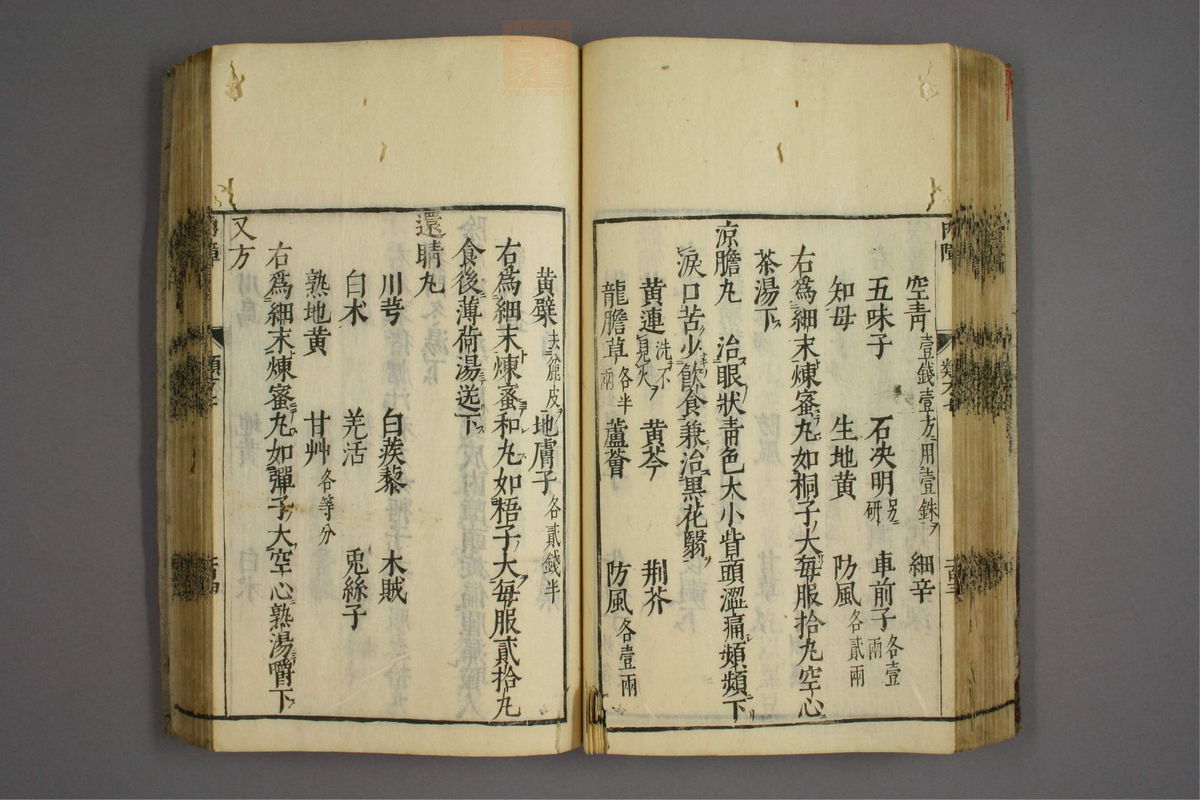 空青壹錢壹方用壹銖 細辛
五味子 石决明另研 車前子各壹兩
知母 生地黄 防風各貳兩
右爲細末煉蜜丸如桐子大每服拾丸空心
茶湯下
凉膽丸 治眼狀青色大小眥頭澀痛頻頻下
淚口苦少飲食兼治黒花翳
黄連洗不見火 黄芩 荆芥
龍膽草各半兩 蘆薈 防風各壹兩
黄檗去麁皮 地膚子各貳錢半
右爲細末煉蜜和丸如梧子大每服貳拾丸
食後薄荷湯送下
還睛丸
川芎 白蒺藜 木賊
白术 羌活 兎絲子
熟地黄 甘艸各等分
右爲細末煉蜜丸如彈子大空心熟湯嚼下
又方